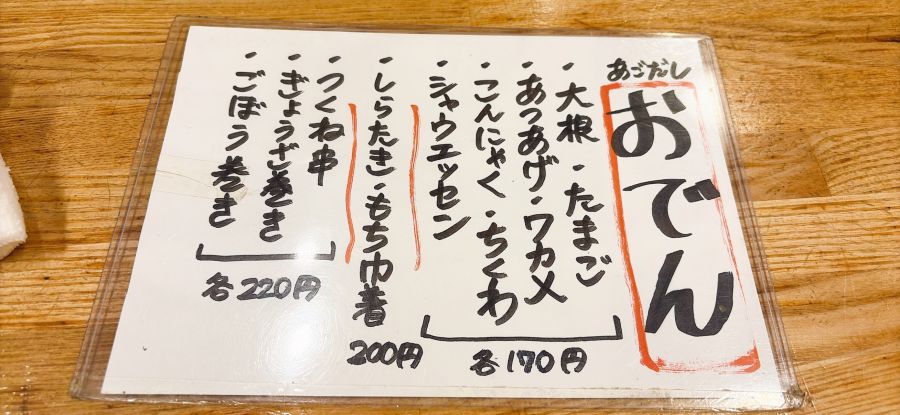 あごだし
おでん
・大根・たまご
・あつあげ・ワカメ
・こんにゃく・ちくわ
・シャウエッセン
各170円
・しらたき・もち巾着
200円
・つくね串
・ぎょうざ巻き
・ごぼう巻き
各220円